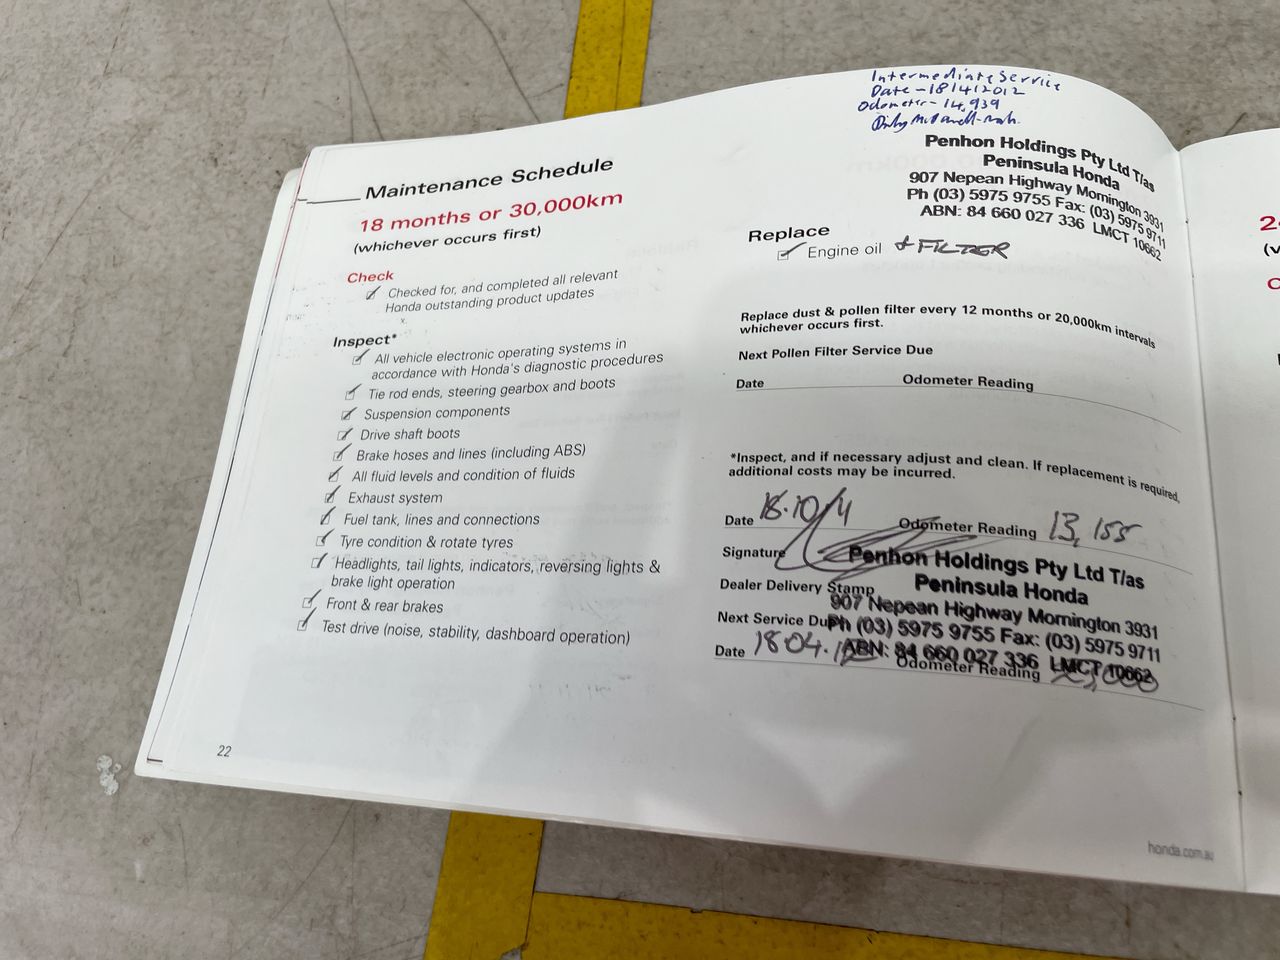 Maintenance Schedule
18 months or 30,000km
(whichever occurs first)
Check
Checked for, and completed all relevant
Honda outstanding product updates
Inspect*
All vehicle electronic operating systems in
accordance with Honda's diagnostic procedures
Tie rod ends, steering gearbox and boots
Suspension components
Drive shaft boots
Brake hoses and lines (including ABS)
All fluid levels and condition of fluids
Exhaust system
Fuel tank, lines and connections
Tyre condition & rotate tyres
Headlights, tail lights, indicators, reversing lights &
brake light operation
Front & rear brakes
Test drive (noise, stability, dashboard operation)
22
Intermediate Service
Date - 18/4/2012
Odometer - 14,939
Penhon Holdings Pty Ltd T/as
Peninsula Honda
907 Nepean Highway Mornington 3931
Ph (03) 5975 9755 Fax: (03) 5975 9711
ABN: 84 660 027 336 LMCT 10662
Replace
Engine oil & FILTER
Replace dust & pollen filter every 12 months or 20,000km intervals
whichever occurs first.
Next Pollen Filter Service Due
Date Odometer Reading
*Inspect, and if necessary adjust and clean. If replacement is required,
additional costs may be incurred.
Date 18.10/11 Odometer Reading 13,155
Signature
Penhon Holdings Pty Ltd T/as
Dealer Delivery Stamp
Peninsula Honda
907 Nepean Highway Mornington 3931
Next Service Due
Ph (03) 5975 9755 Fax: (03) 5975 9711
ABN: 84 660 027 336 LMCT 10662
Date 18.04. Odometer Reading
honda.com.au
2
(v
C